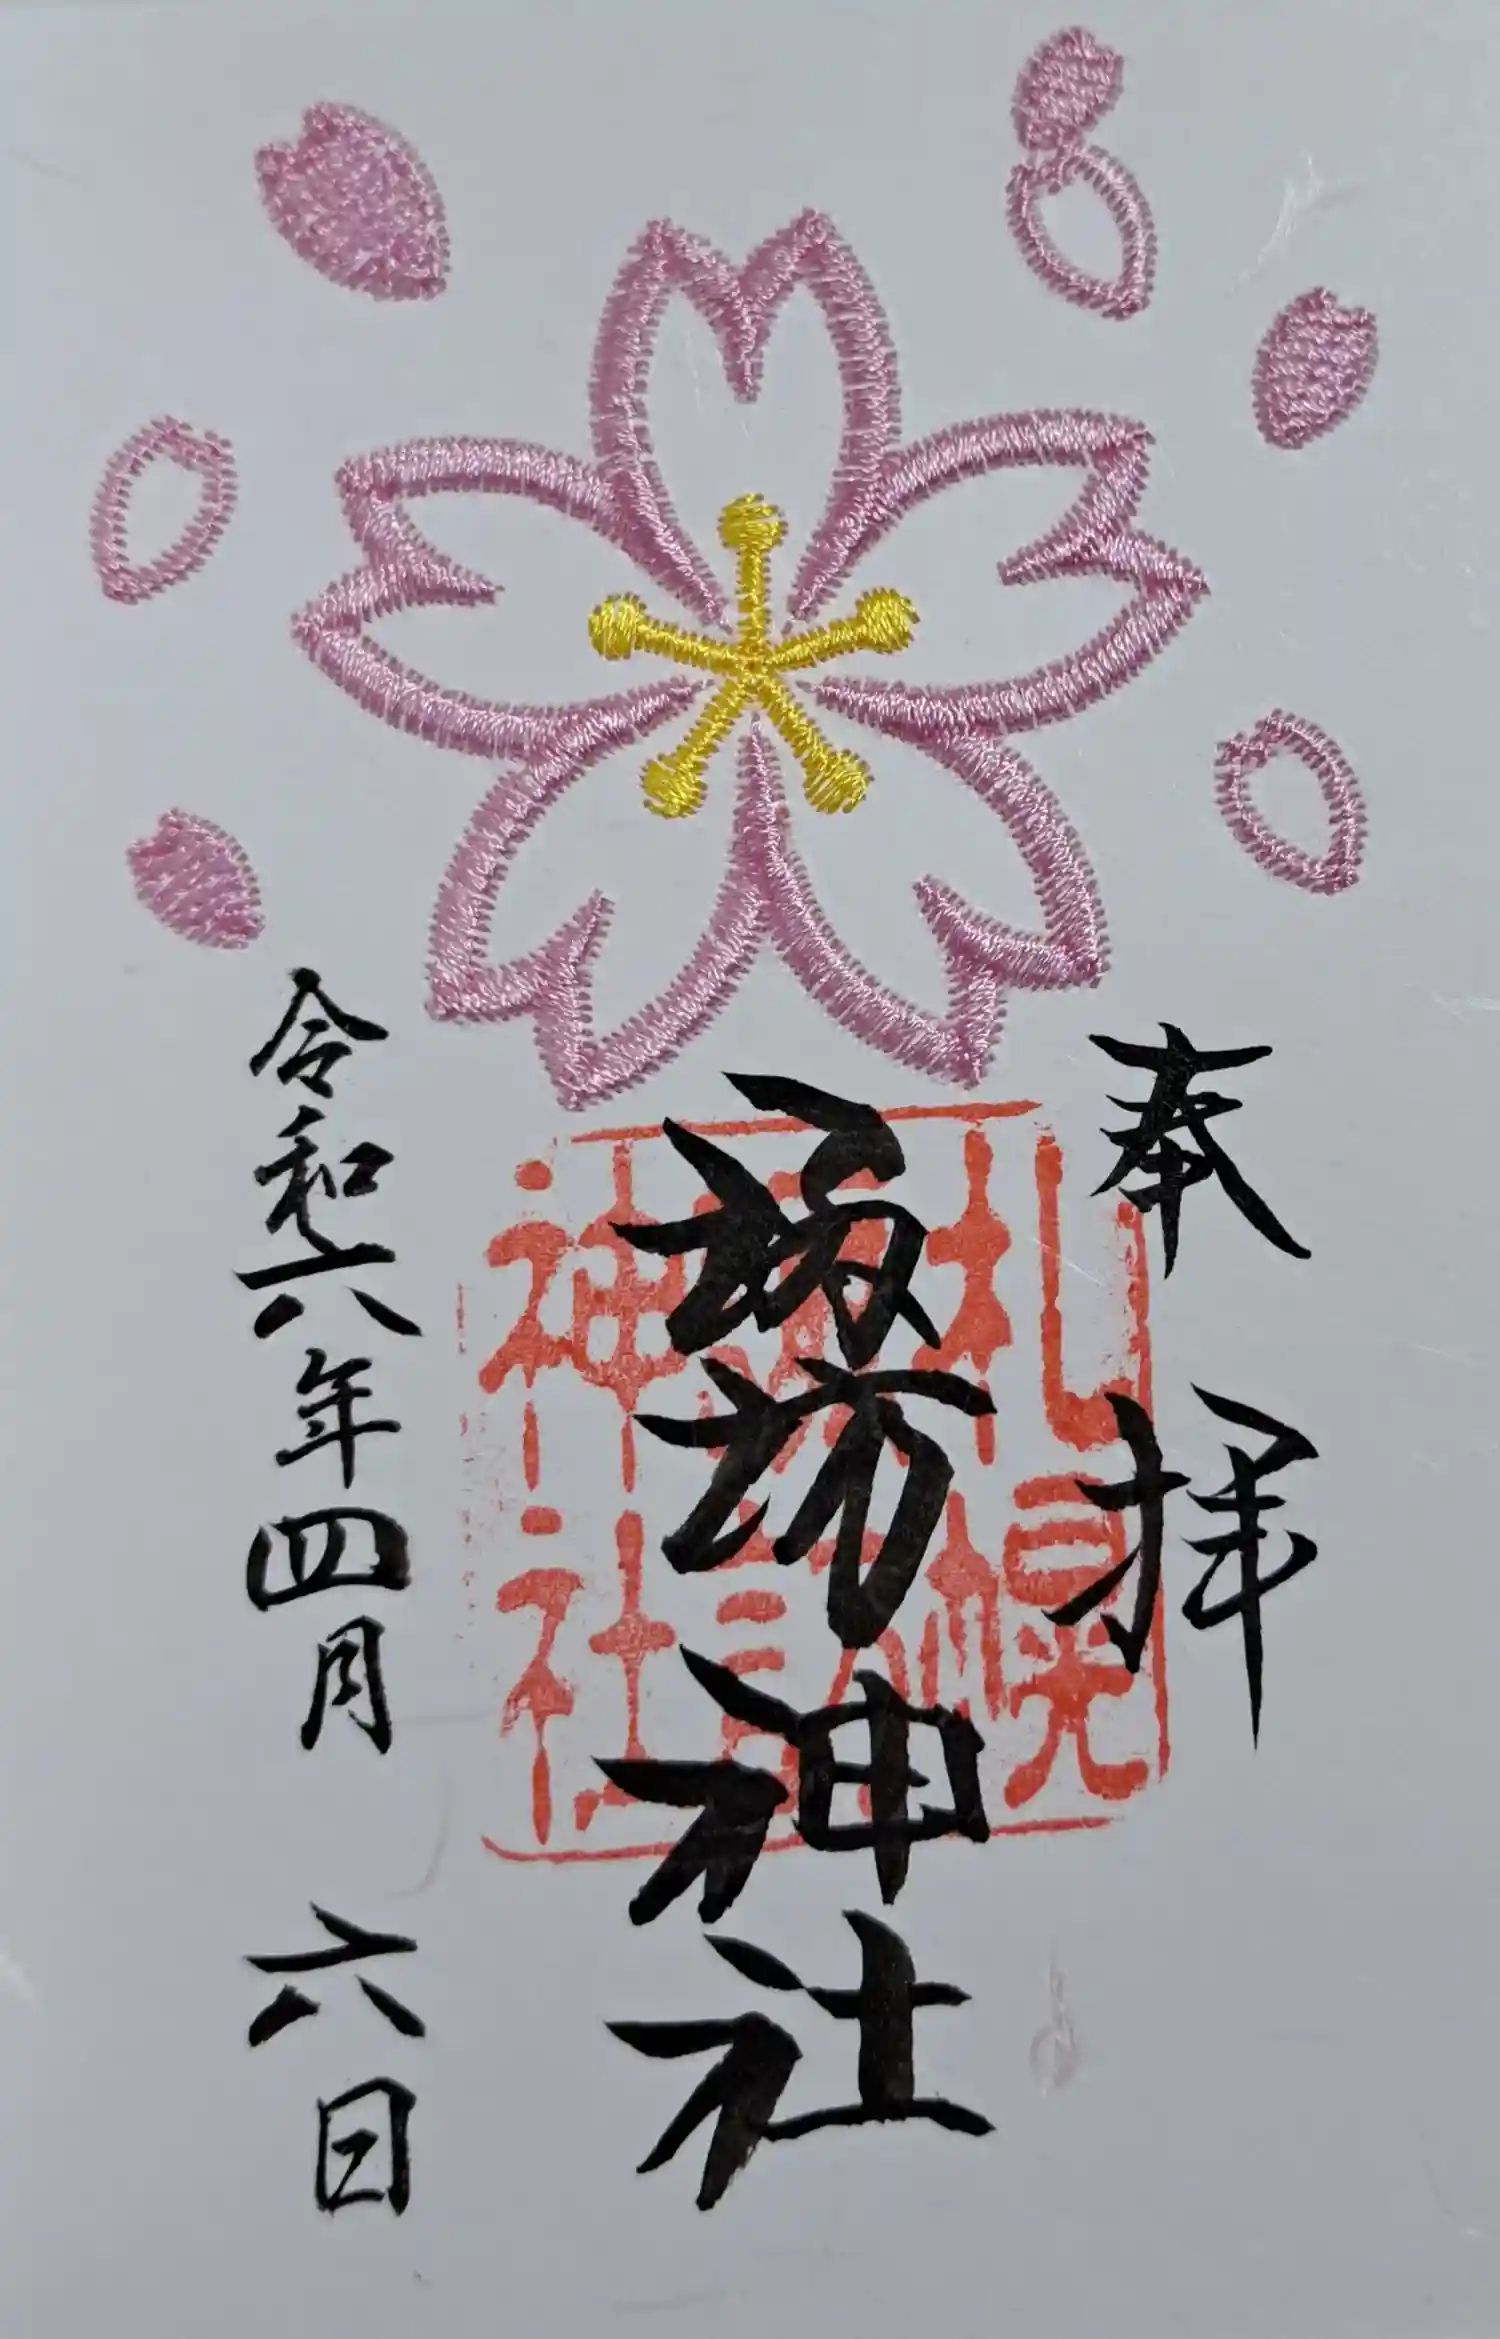 奉拝
諏訪神社
札幌
諏訪
神社
令和六年四月六日